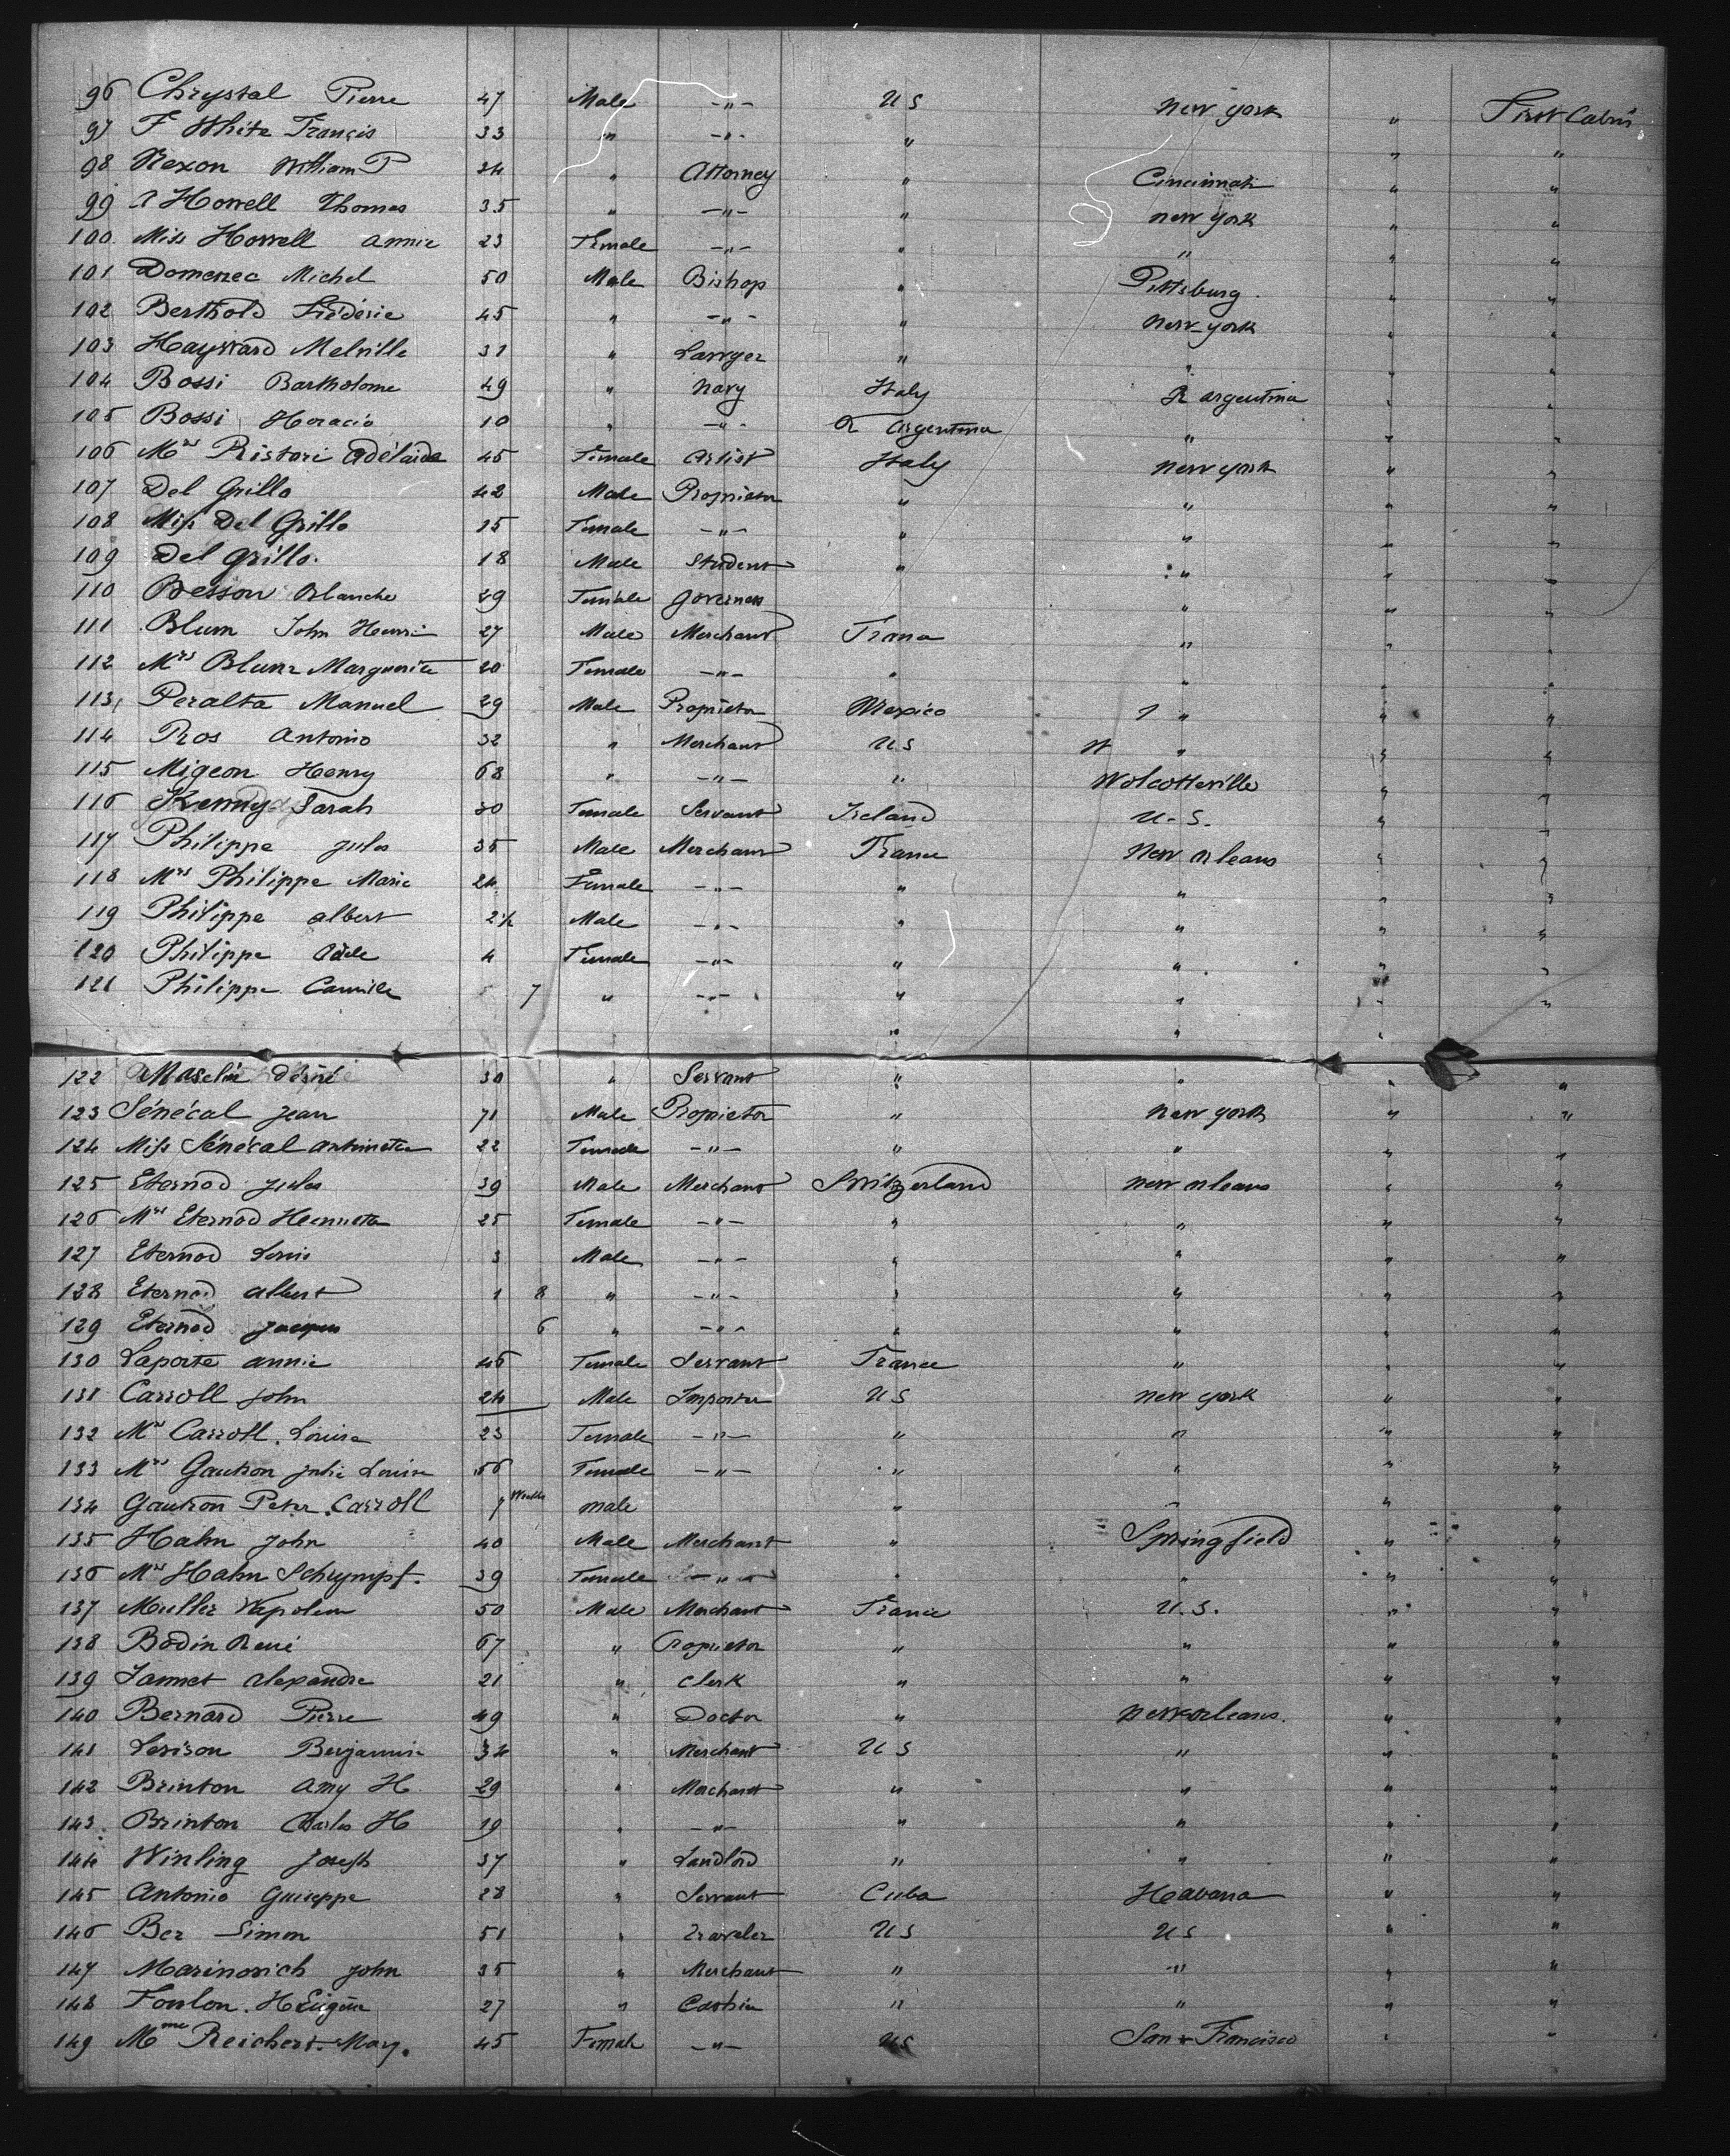 96 Chrystal Pierre 47 Male -"- U S New York " First Cabin
97 F White Françis 33 " -"- " " "
98 Nexon William P 34 " Attorney " Cincinnati " "
99 Howell Thomas 35 " -"- " New York " "
100 Miss Howell Annie 23 Female -"- " " " "
101 Domenec Michel 50 Male Bishop " Pittsburg " "
102 Berthold Frédéric 45 " -"- " New-York " "
103 Hayward Melville 31 " Lawyer " " " "
104 Bossi Bartholome 49 " Navy Italy R Argentina " "
105 Bossi Horacio 10 " -"- R Argentina " " "
106 Mrs Ristori Adélaide 45 Female Artist Italy New York " "
107 Del Grillo 42 Male Proprietor " " " "
108 Miss Del Grillo 25 Female -"- " " " "
109 Del Grillo 18 Male Student " " " "
110 Besson Blanche 29 Female Governess " " "
111 Blum John Henri 27 Male Merchant France " " "
112 Mrs Blum Marguerite 20 Female -"- " " " "
113 Peralta Manuel 29 Male Proprietor Mexico " " "
114 Ros Antonio 32 " Merchant U S " " "
115 Migeon Henry 68 " -"- " Wolcotteville " "
116 Kenny Sarah 30 Female Servant Ireland U-S. " "
117 Philippe Jules 35 Male Merchant France New Orleans " "
118 Mrs Philippe Marie 24 Female -"- " " " "
119 Philippe Albert 2½ Male -"- " " " "
120 Philippe Adele 4 Female -"- " " " "
121 Philippe Camille 7 " -"- " " " "
" " "
122 Maselin Désiré 30 " Servant " " " "
123 Sénécal Jean 71 Male Proprietor " New York " "
124 Miss Sénécal Antoinette 22 Female -"- " " " "
125 Eternod Jules 39 Male Merchant Switzerland New Orleans " "
126 Mrs Eternod Henrietta 25 Female -"- " " " "
127 Eternod Louis 3 Male -"- " " " "
128 Eternod Albert 1 8 " -"- " " " "
129 Eternod Jacques 6 " -"- " " " "
130 Laporte Annie 46 Female Servant France " " "
131 Carroll John 24 Male Importer U S New York " "
132 Mrs Carroll Louise 23 Female -"- " " " "
133 Mrs Gautron Julie Louise 56 Female -"- " " " "
134 Gautron Peter Carroll 7 Weeks male " " " "
135 Hahn John 40 Male Merchant " Springfield " "
136 Mrs Hahn Schrympf. 39 Female -"- " " " "
137 Muller Napoleon 50 Male Merchant France U.S. " "
138 Bodin René 67 " Proprietor " " " "
139 Jannet Alexandre 21 " Clerk " " " "
140 Bernard Pierre 49 " Doctor " New Orleans. " "
141 Levison Benjamin 34 " Merchant U S " " "
142 Brinton Amy H 29 " Merchant " " " "
143 Brinton Charles H 19 " -"- " " " "
144 Winling Joseph 37 " Landlord " " " "
145 Antonio Guiseppe 28 " Servant Cuba Havana " "
146 Ber Simon 51 " Traveler U S U S " "
147 Marinovich John 35 " Merchant " " " "
148 Foulon H Eugène 27 " Cashier " " " "
149 Mme Reichert Mary. 45 Female -"- US San Francisco " "